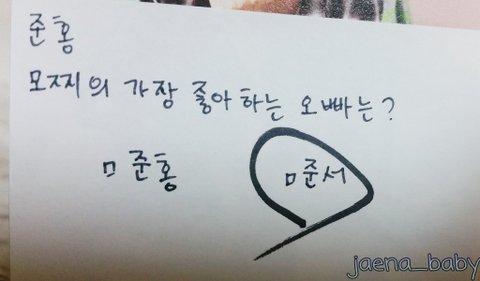 준홍
모찌의 가장 좋아하는 오빠는?
□ 준홍 □ 준서
jaena_baby